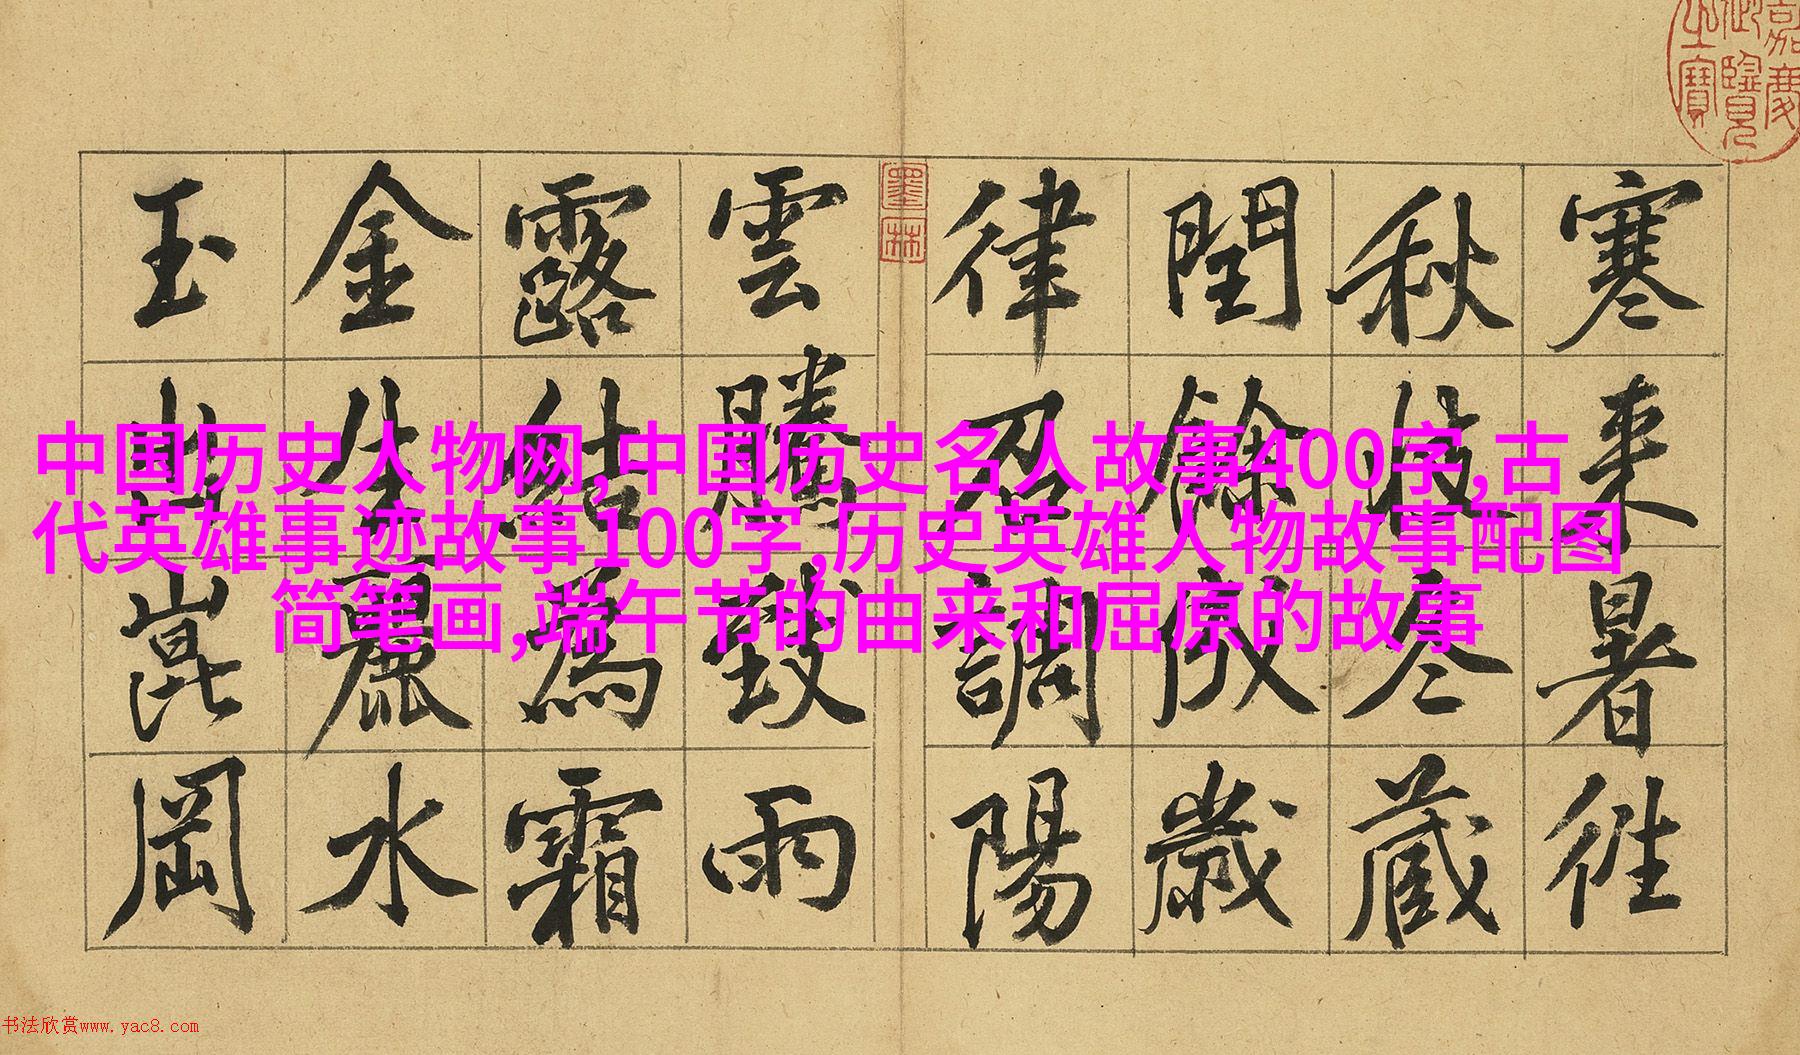 嘉慶御覽之寶
寒来暑往
秋收冬蔵
閏餘成歲
律召調陽
墨林
雲騰致雨
露結爲霜
金生麗水
玉出崑岡
中国历史人物网,中国历史名人故事400字,古
代英雄事迹故事100字,历史英雄人物故事配图
简笔画,端午节的由来和屈原的故事
书法欣赏www.yac8.com